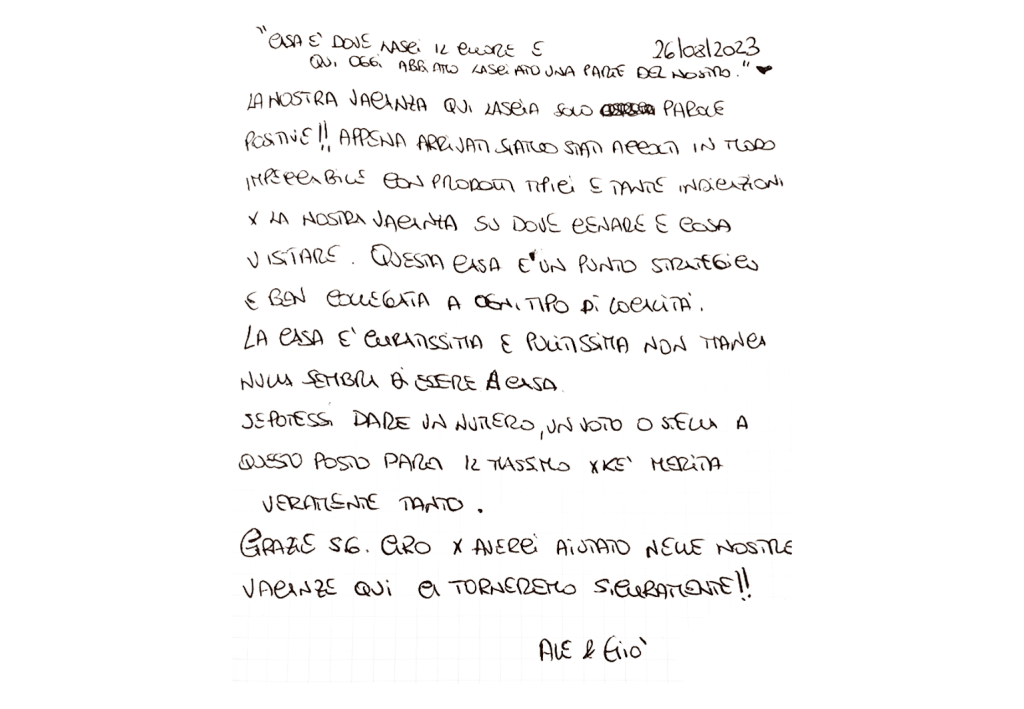 "CASA E' DOVE LASCI IL CUORE E 26/08/2023
QUI OGGI ABBIAMO LASCIATO UNA PARTE DEL NOSTRO." ♥
LA NOSTRA VACANZA QUI LASCIA SOLO PAROLE
POSITIVE!! APPENA ARRIVATI SIAMO STATI ACCOLTI IN MODO
IMPECCABILE CON PRODOTTI TIPICI E TANTE INDICAZIONI
X LA NOSTRA VACANZA SU DOVE CENARE E COSA
VISITARE. QUESTA CASA E' UN PUNTO STRATEGICO
E BEN COLLEGATA A OGNI TIPO DI LOCALITÀ.
LA CASA E' CURATISSIMA E PULITISSIMA NON MANCA
NULLA SEMBRA DI ESSERE A CASA.
SE POTESSI DARE UN NUMERO, UN VOTO O STELLA A
QUESTO POSTO DAREI IL MASSIMO XKE' MERITA
VERAMENTE TANTO.
GRAZIE SIG. CIRO X AVERCI AIUTATO NELLE NOSTRE
VACANZE QUI CI TORNEREMO SICURAMENTE!!
ALE & GIO'